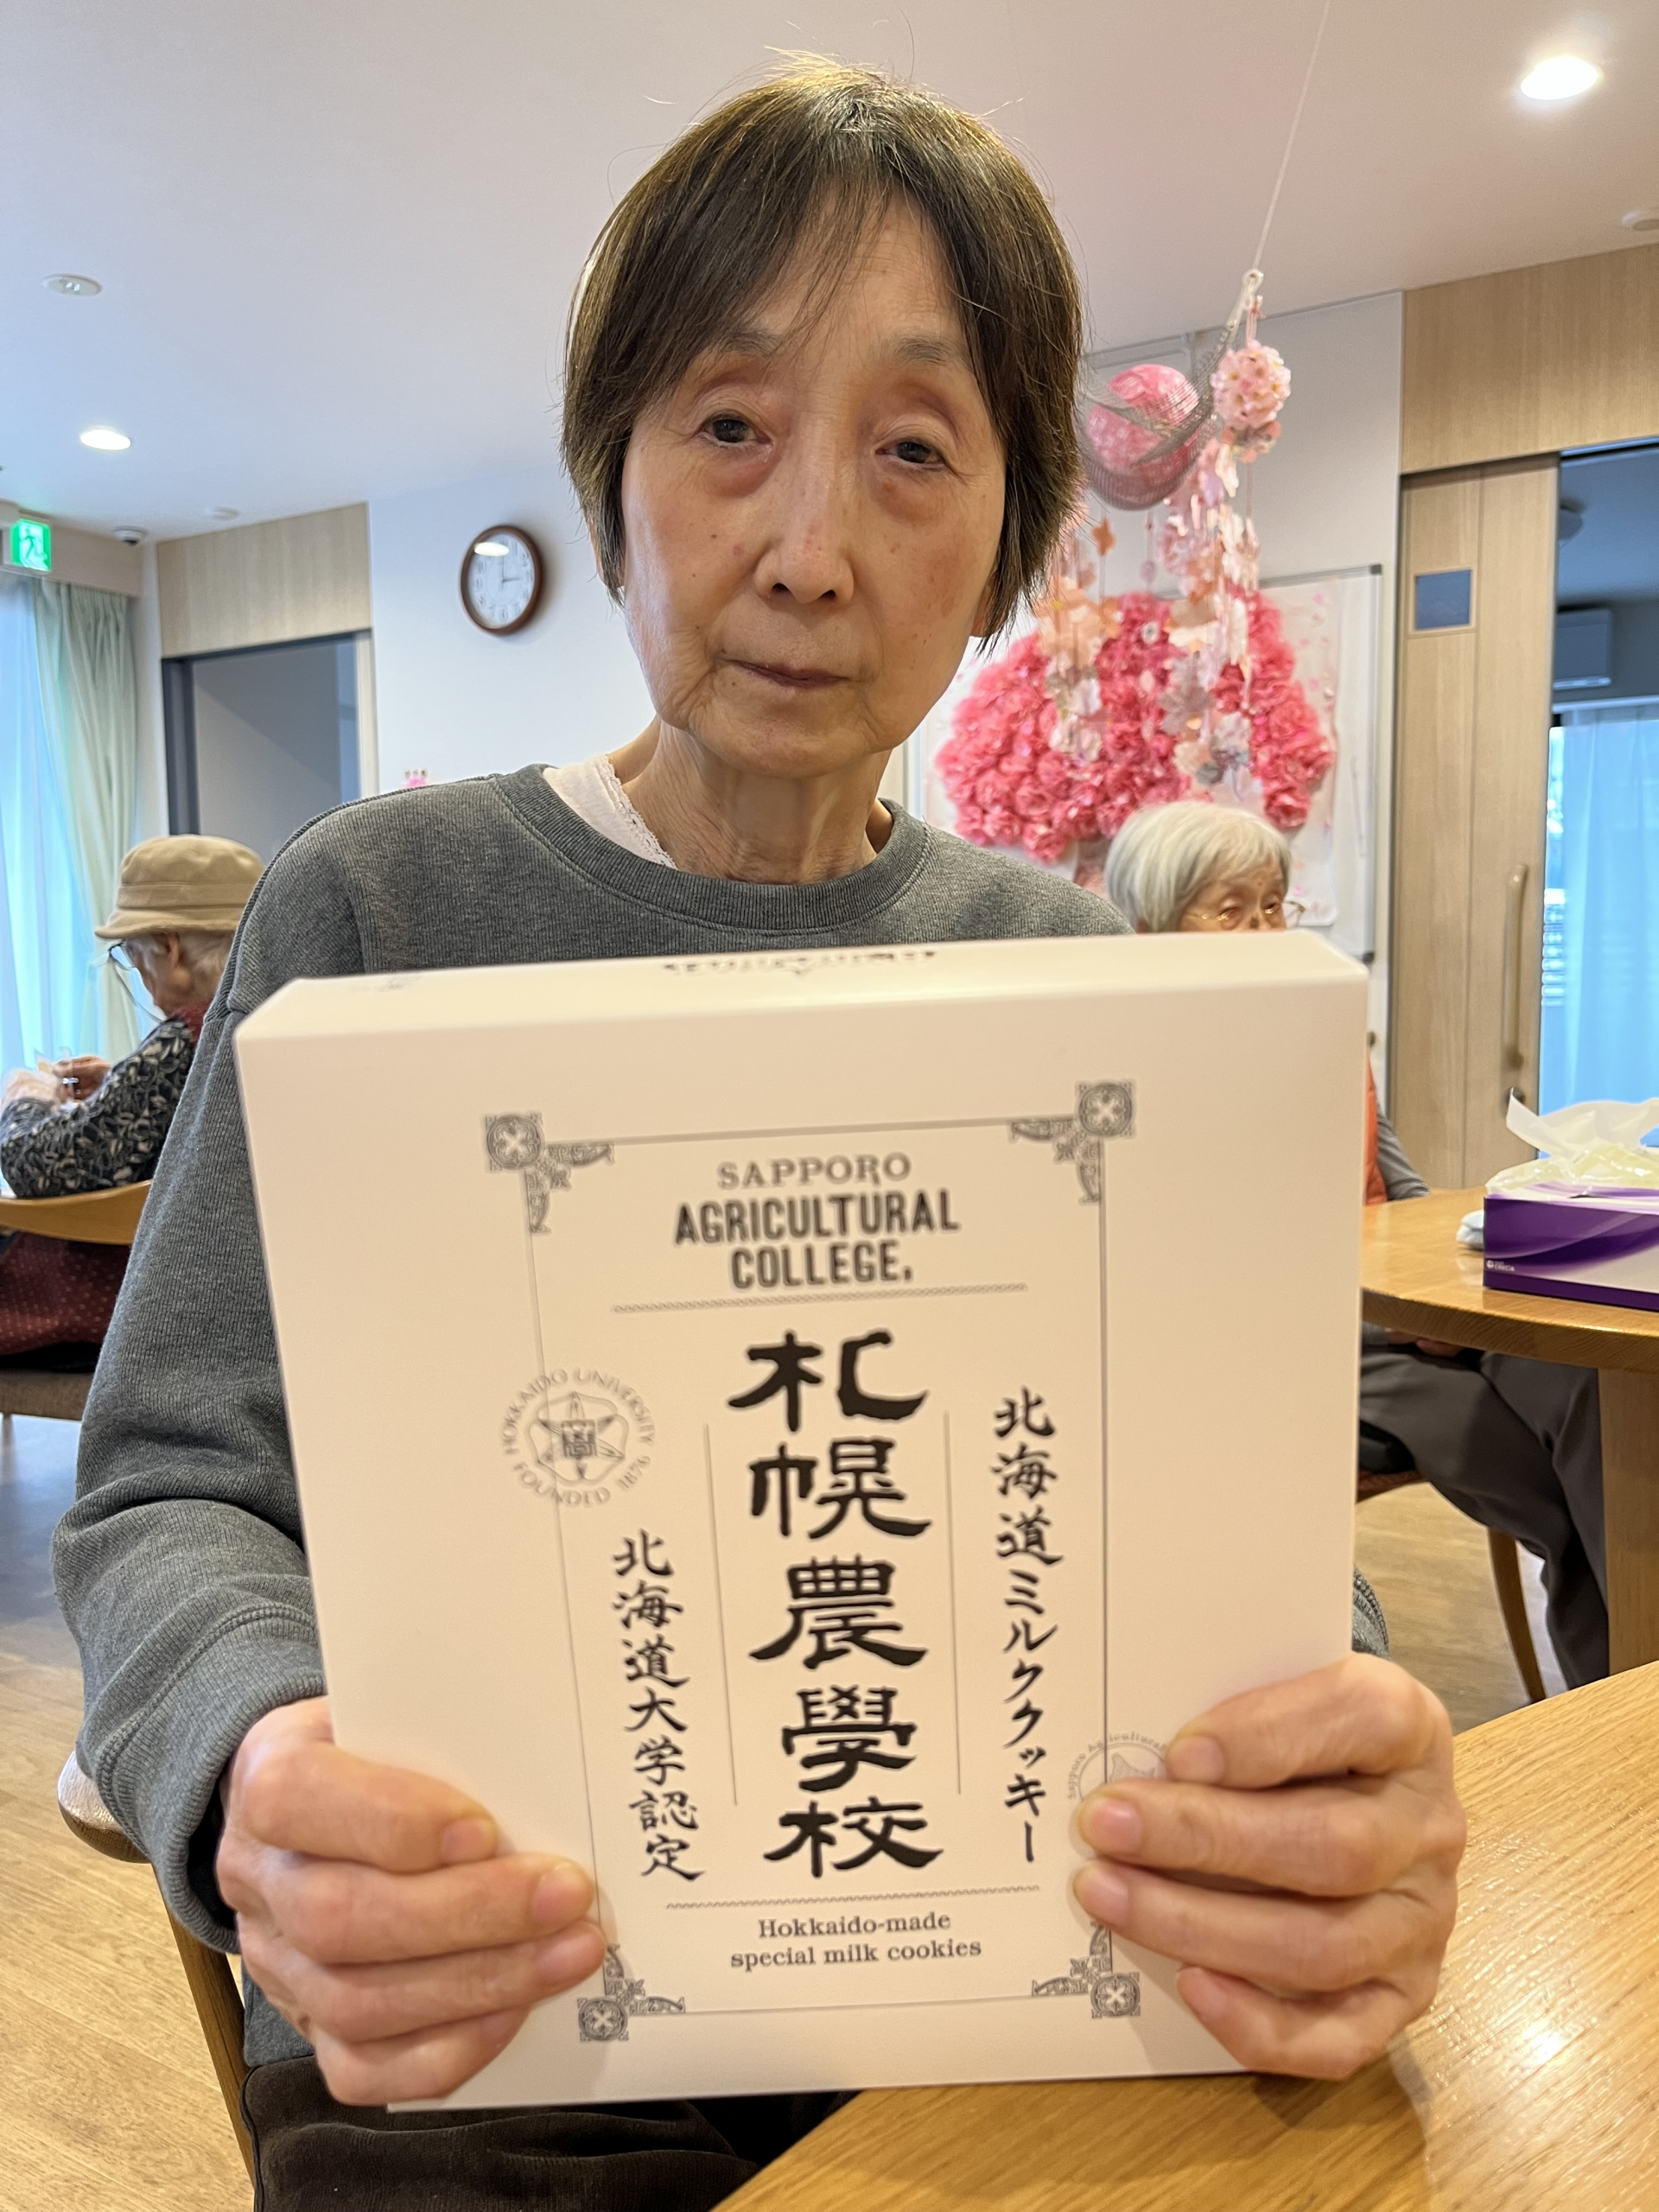 SAPPORO
AGRICULTURAL
COLLEGE,
北海道ミルククッキー
札幌農學校
HOKKAIDO UNIVERSITY
FOUNDED 1876
北海道大学認定
Hokkaido-made
special milk cookies
Sapporo Agricultural